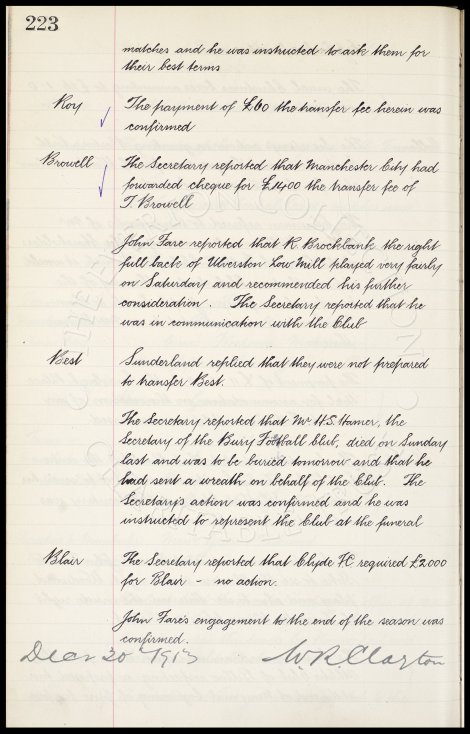 223
matches and he was instructed to ask them for
their best terms
Roy The payment of £60 the transfer fee herein was
confirmed
Browell The Secretary reported that Manchester City had
forwarded cheque for £1400 the transfer fee of
T Browell
John Fare reported that R. Brockbank the right
full back of Ulverston Low Mill played very fairly
on Saturday and recommended his further
consideration. The Secretary reported that he
was in communication with the Club
Best Sunderland replied that they were not prepared
to transfer Best.
The Secretary reported that Mr H.S. Hamer, the
Secretary of the Bury Football Club, died on Sunday
last and was to be buried tomorrow and that he
had sent a wreath on behalf of the Club. The
Secretary's action was confirmed and he was
instructed to represent the Club at the funeral
Blair The Secretary reported that Clyde FC required £2000
for Blair - no action.
John Fare's engagement to the end of the season was
confirmed.
Decr 30th 1913 W.R. Clayton